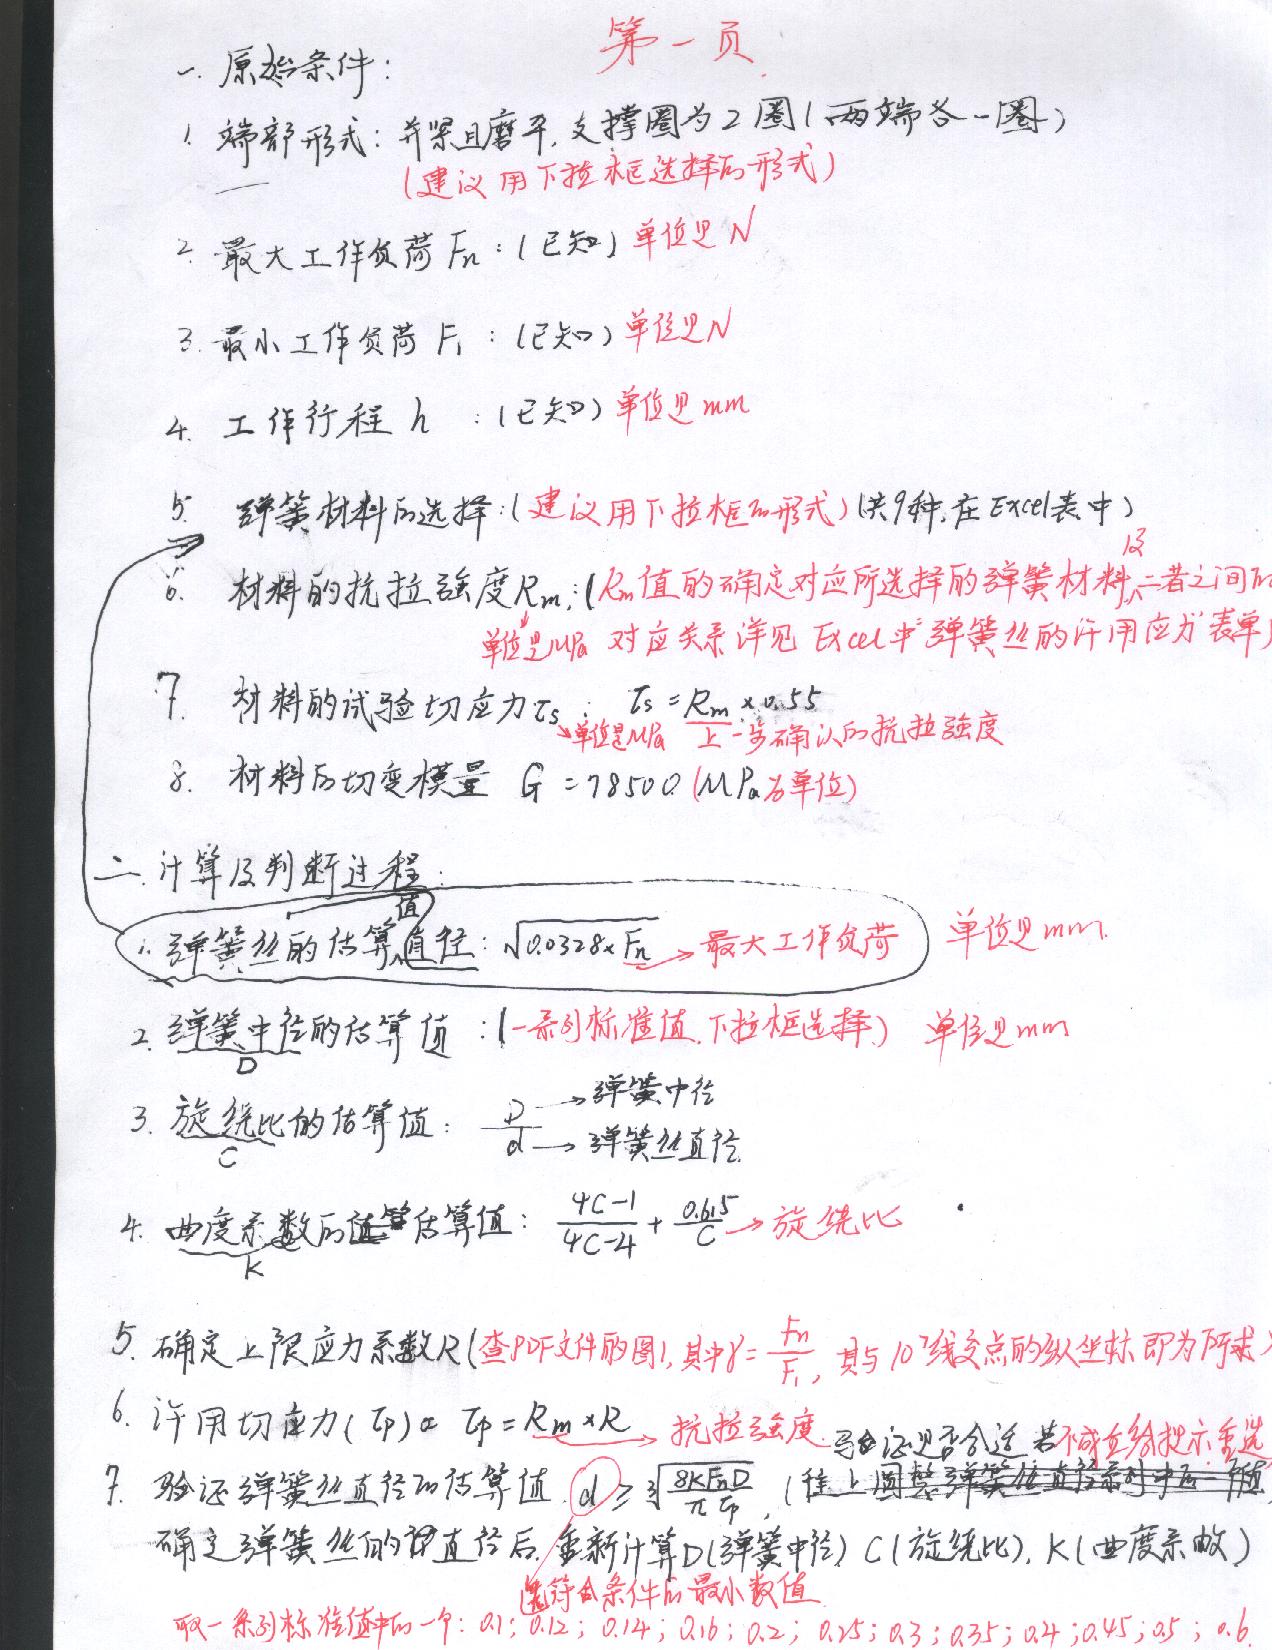 第一页
一. 原始条件:
1. 端部形式: 并紧且磨平, 支撑圈为2圈(两端各一圈)
(建议用下拉框选择的形式)
2. 最大工作负荷 Fn: (已知) 单位是N
3. 最小工作负荷 F1: (已知) 单位是N
4. 工作行程 h : (已知) 单位是mm
5. 弹簧材料的选择: (建议用下拉框的形式) (共9种, 在Excel表中)
6. 材料的抗拉强度Rm: (Rm值的确定对应所选择的弹簧材料及, 二者之间的
单位是MPa 对应关系详见 Excel中"弹簧丝的许用应力"表单)
7. 材料的试验切应力τs: τs = Rm × 0.55
单位是MPa 上一步确认的抗拉强度
8. 材料的切变模量 G = 78500 (MPa为单位)
二. 计算及判断过程:
1. 弹簧丝的估算值直径: √0.0328×Fn → 最大工作负荷 单位是mm.
2. 弹簧中径的估算值 : (一系列标准值. 下拉框选择) 单位是mm
D
3. 旋绕比的估算值: D/d → 弹簧中径 → 弹簧丝直径
C
4. 曲度系数的估算值: (4C-1)/(4C-4) + 0.615/C → 旋绕比
K
5. 确定上限应力系数R (查PDF文件的图1, 其中γ = Fn/F1, 其与10⁷线交点的纵坐标即为所求
6. 许用切应力(τp) τp = Rm × R → 抗拉强度. 验证是否合适 若不成立给提示重选
7. 验证弹簧丝直径的估算值. d ≥ ∛(8KFnD/πτp), (
确定弹簧丝的直径后. 重新计算D(弹簧中径) C(旋绕比), K(曲度系数)
选符合条件的最小数值
取一系列标准值中的一个: 0.1; 0.12; 0.14; 0.16; 0.2; 0.25; 0.3; 0.35; 0.4; 0.45; 0.5; 0.6.